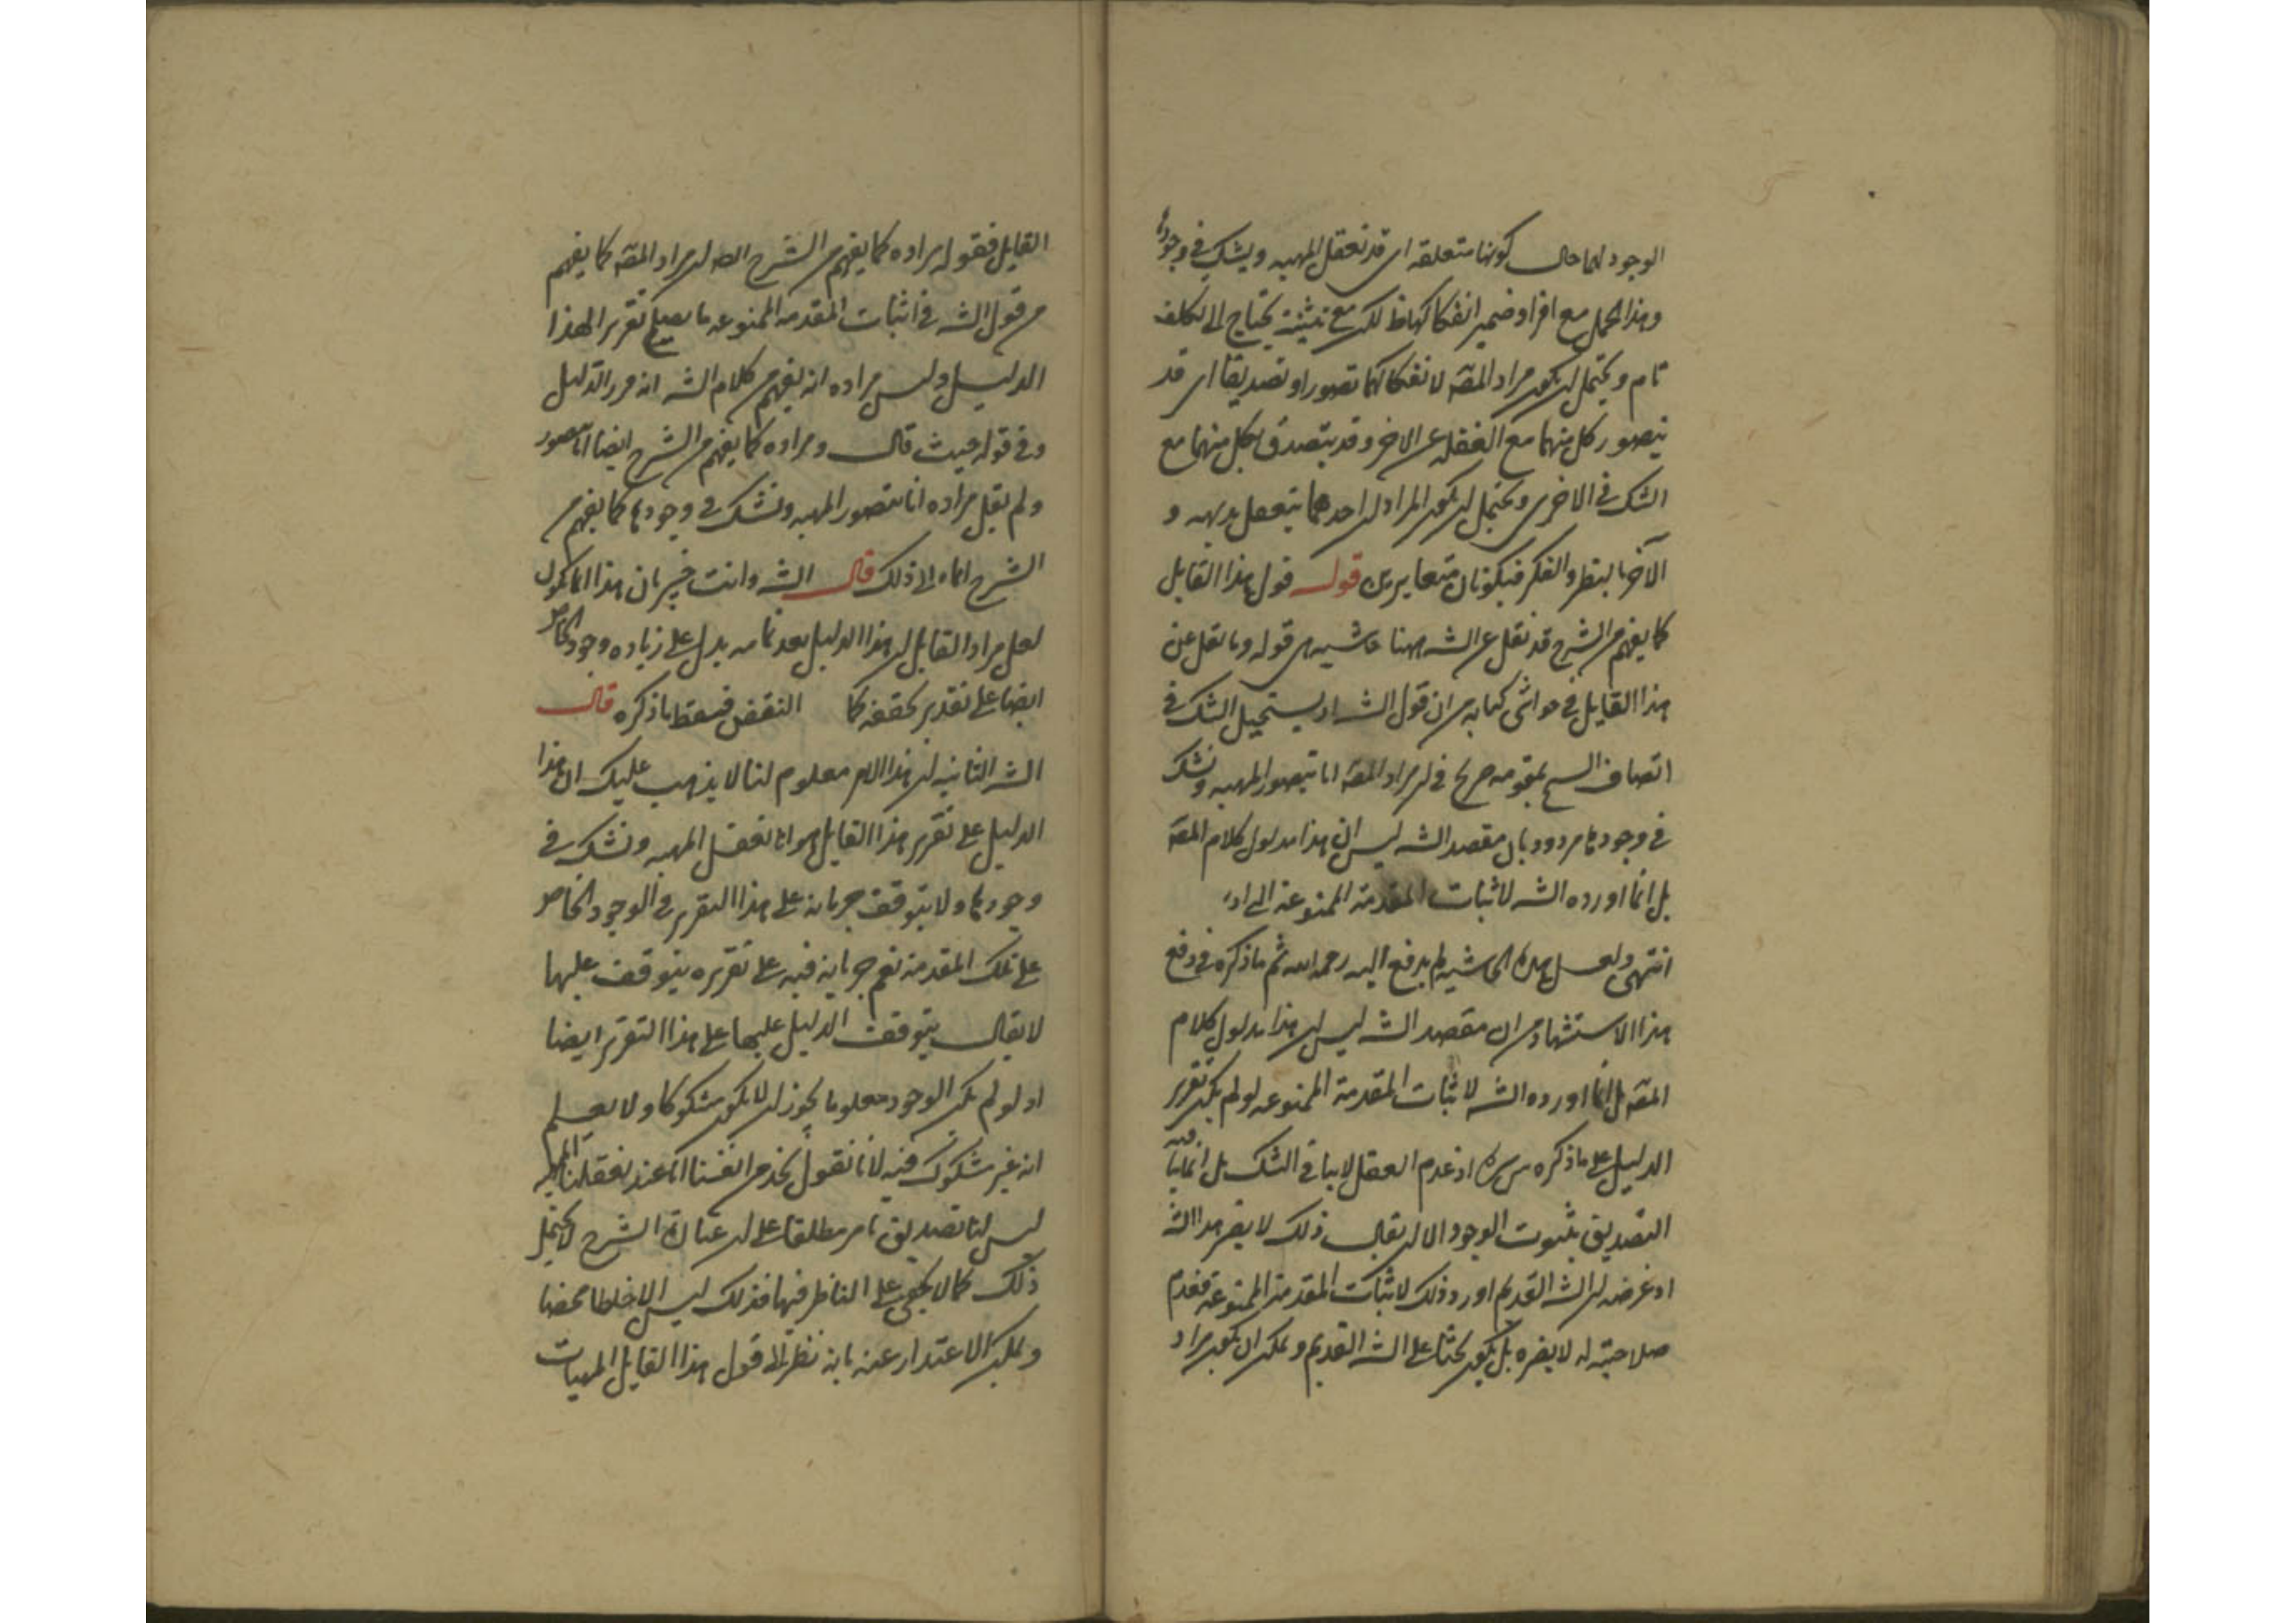 الوجود لهما حال كونها متعلقه اى قد نعقل المهيه ويشك فى وجودها
وهذا الحمل مع افراد ضمير انفكاكها ظ لكن مع تثنيته يحتاج الى تكلف
تام ويحتمل ان يكون مراد المصه لانفكاكهما تصورا وتصديقا اى قد
يتصور كل منهما مع الغفله عن الاخر وقد يتصدق بكل منهما مع
الشك فى الاخرى ويحتمل ان يكون المراد ان احدهما يتعقل بديهه و
الآخر بالنظر والفكر فيكونان متغايرين قوله قول هذا القايل
كما يفهم من الشرح قد نقل عن الشه ههنا حاشيه هى قوله وما نقل عن
هذا القايل فى حواشى كتابه من ان قول الشه اذ يستحيل الشك فى
اتصاف الشى بمقومه صريح فى ان مراد المصه انا نتصور المهيه ونشك
فى وجودها مردود بان مقصد الشه ليس ان هذا مدلول كلام المصه
بل انما اورده الشه لاثبات المقدمة الممنوعة
انتهى ولعل هذه الحاشيه لم يدفع اليه رحمه الله ثم ما ذكره فى دفع
هذا الاستشهاد من ان مقصد الشه ليس ان هذا مدلول كلام
المصه بل انما اورده الشه لاثبات المقدمة الممنوعه لو لم يكن تقرير
الدليل على ما ذكره اذ عدم العقل لاينافى الشك بل انما ينافيه
التصديق بثبوت الوجود الا ان يقال ذلك لا يضر هذا الشه
اذ غرضه ان الشه القديم اورد ذلك لاثبات المقدمة الممنوعة فعدم
صلاحيته له لا يضره بل يكون بحثا على الشه القديم ويمكن ان يكون مراد
القايل فقوله مراده كما يفهم من الشرح ان مراد المصه كما يفهم
من قول الشه فى اثبات المقدمه الممنوعه ما يصلح تقريرا لهذا
الدليل وليس مراده انه يفهم من كلام الشه انه قرر الدليل
وفى قوله حيث قال ومراده كما يفهم من الشرح ايضا انا نتصور
ولم يقل مراده انا نتصور المهيه ونشك فى وجودها كما يفهم من
الشرح ايماء الى ذلك قال الشه وانت خبير بان هذا انما يكون
لعل مراد القايل ان هذا الدليل بعد تمامه يدل على زياده وجود الخاص
ايضا على تقدير تحققه كما النقض فسقط ما ذكره قال
الشه الثانيه ان هذا الامر معلوم لنا لا يذهب عليك ان هذا
الدليل على تقرير هذا القايل هو انا نعقل المهيه ونشك فى
وجودها ولا يتوقف جريانه على هذا التقرير فى الوجود الخاص
على تلك المقدمة نعم جريانه فيه على تقريره يتوقف عليها
لا يقال يتوقف الدليل عليها على هذا التقرير ايضا
اذ لو لم يكن الوجود معلوما يجوز ان لا يكون مشكوكا ولا يعلم
انه غير مشكوك فيه لانا نقول نجد من انفسنا انا عند تعقلنا المهيه
ليس لنا تصديق تام مطلقا على ان عبارة الشرح لا يحتمل
ذلك كما لا يخفى على الناظر فيها فذلك ليس الا خلطا محضا
ويمكن الاعتذار عنه بانه نظر الى قول هذا القايل المهيات